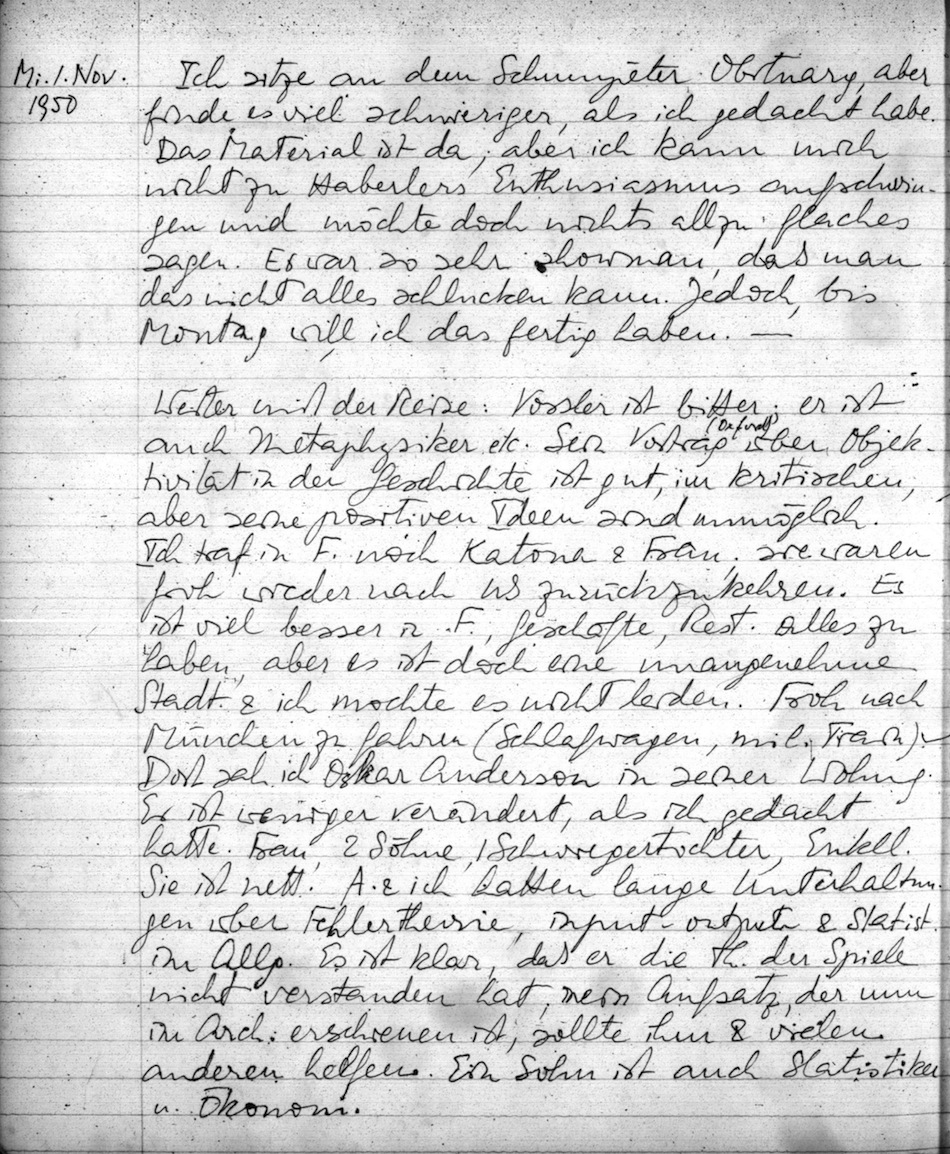 Mi. 1. Nov.
1950
Ich sitze an dem Schumpeter Obituary, aber
finde es viel schwieriger, als ich gedacht habe.
Das Material ist da, aber ich kann mich
nicht zu Haberlers Enthusiasmus aufschwin-
gen und möchte doch nichts allzu flaches
sagen. Er war so sehr showman, daß man
das nicht alles schlucken kann. Jedoch, bis
Montag will ich das fertig haben. —
Weiter mit der Reise: Vossler ist bitter; er ist
auch Metaphysiker etc. Sein Vortrag (Oxford) über Objek-
tivität in der Geschichte ist gut, im kritischen,
aber seine positiven Ideen sind unmöglich.
Ich traf in F. noch Katona & Frau. sie waren
froh wieder nach US zurückzukehren. Es
ist viel besser in F., Geschäfte, Rest. alles zu
haben, aber es ist doch eine unangenehme
Stadt. & ich mochte es nicht leiden. Froh nach
München zu fahren (Schlafwagen, mil. Train).
Dort sah ich Oskar Anderson in seiner Wohng.
Er ist weniger verändert, als ich gedacht
hatte. Frau, 2 Söhne, 1 Schwiegertochter, Enkel.
Sie ist nett. A. & ich hatten lange Unterhaltun-
gen über Fehlertheorie, input-output & Statist.
im Allg. Es ist klar, daß er die Th. der Spiele
nicht verstanden hat, mein Aufsatz, der nun
im Arch. erschienen ist, sollte ihm & vielen
anderen helfen. Ein Sohn ist auch Statistiker
u. Ökonom.